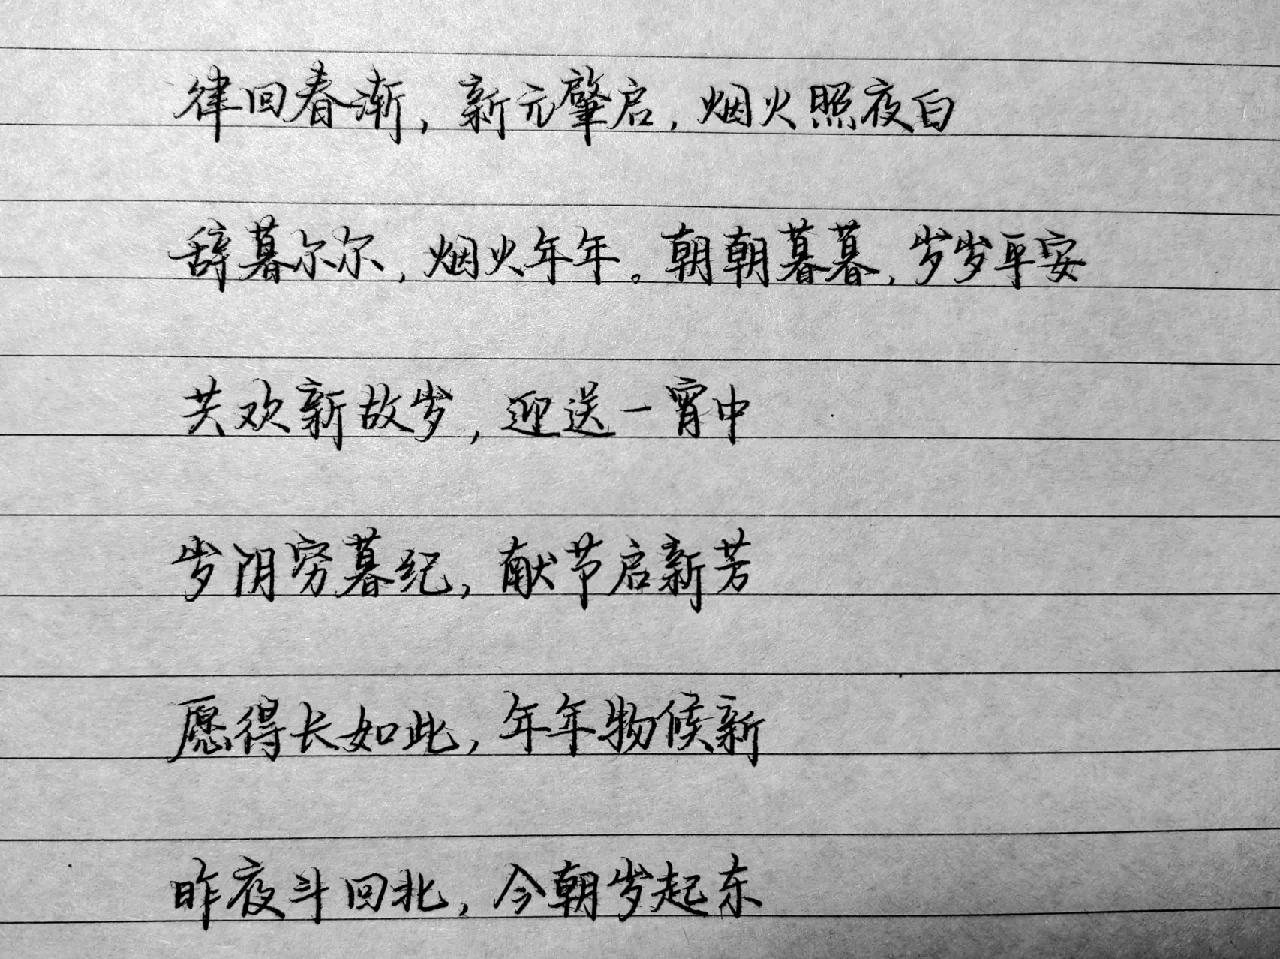 律回春渐，新元肇启，烟火照夜白
辞暮尔尔，烟火年年。朝朝暮暮，岁岁平安
共欢新故岁，迎送一宵中
岁阴穷暮纪，献节启新芳
愿得长如此，年年物候新
昨夜斗回北，今朝岁起东